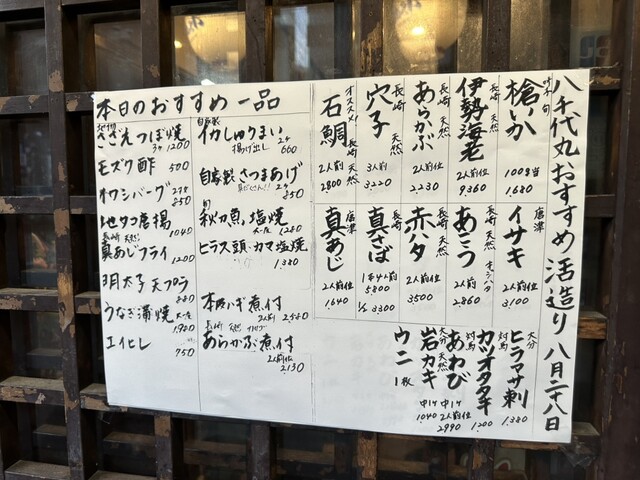 八千代丸おすすめ活造り 八月二十八日
槍いか 100g当 1,680
伊勢海老 長崎 天然 2人前位 9,360
あらかぶ 長崎 天然 2人前位 2,230
穴子 長崎 天然 3人前 3,220
石鯛 オススメ! 長崎 天然 2人前 2800
イサキ 唐津 2人前位 3,100
あこう 長崎 天然 キジハタ 2人前位 2,860
赤ハタ 長崎 天然 2人前位 3500
真さば 長崎 1本4人前 5,800 1/2 3300
真あじ 唐津 2人前位 1,640
ヒラマサ刺 大分 1,380
カツオタタキ 対馬 1200
あわび 対馬 中1ケ 2人前位 2990
岩カキ 大分 天然 中1ケ 1040
ウニ 1枚
本日のおすすめ一品
さざえつぼ焼 3ケ 1200
モズク酢 500
オクワシバーグ 850
地タコ唐揚 1040
長崎 天然 真あじフライ 1200
明太子天プラ 880
うなぎ蒲焼 1,900
エイヒレ 750
自家製 イカしゅうまい 2ケ 揚げ出し 660
自家製さつまあげ 2ケ 850
旬 秋刀魚塩焼 1280
ヒラス頭・カマ塩焼 1,380
本カワハギ煮付 2人前 2,580
長崎 天然 あらかぶ煮付 2人前位 2130